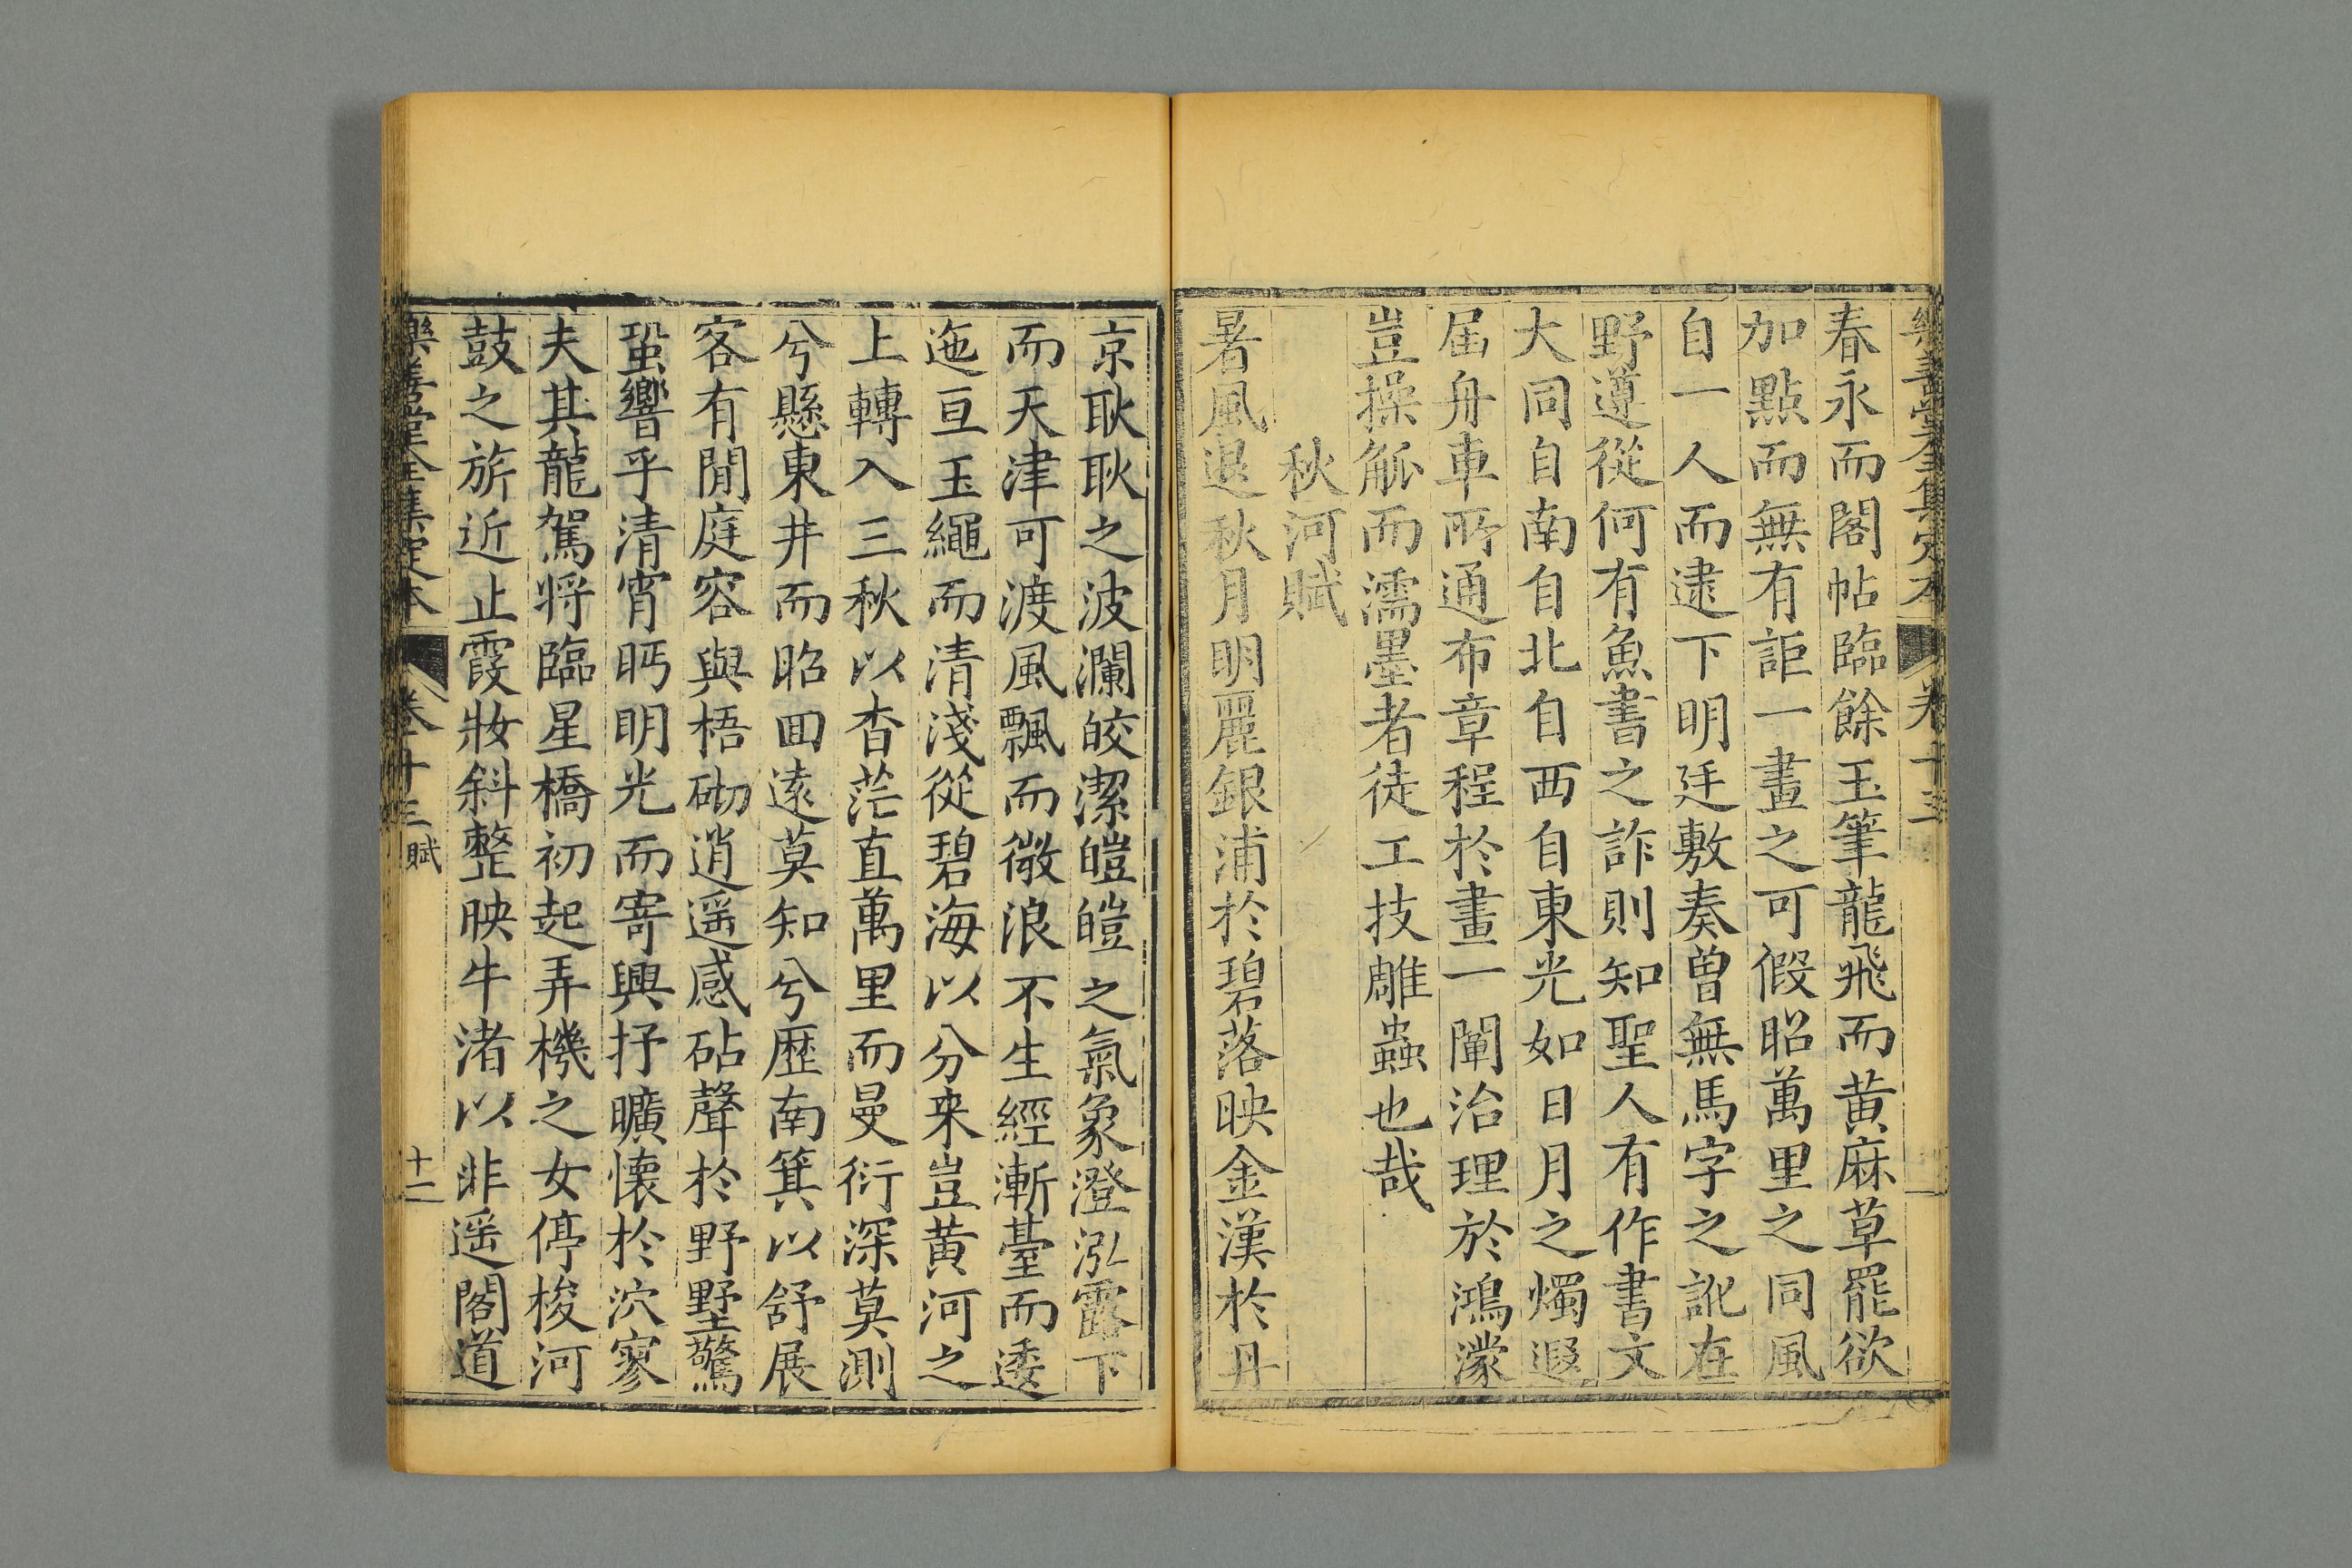 樂善堂全集定本 卷十三
春永而閣帖臨餘玉筆龍飛而黃麻草罷欲
加點而無有詎一畫之可假昭萬里之同風
自一人而逮下明廷敷奏曽無馬字之訛在
野遵從何有魚書之詐則知聖人有作書文
大同自南自北自西自東光如日月之燭遐
届舟車所通布章程於畫一闡治理於鴻濛
豈操觚而濡墨者徒工技雕蟲也哉
秋河賦
暑風退秋月明麗銀浦於碧落映金漢於丹
京耿耿之波瀾皎潔皚皚之氣象澄泓露下
而天津可渡風飄而微浪不生經漸臺而逶
迤亘玉繩而清淺從碧海以分来豈黃河之
上轉入三秋以杳茫直萬里而曼衍深莫測
兮懸東井而昭囬遠莫知兮歷南箕以舒展
客有閒庭容與梧砌逍遥感砧聲於野墅驚
蛩響乎清宵眄明光而寄興抒曠懐於泬寥
夫其龍駕将臨星橋初起弄機之女停梭河
鼓之旂近止霞妝斜整映牛渚以非遥閣道
樂善堂全集定本 卷十三 賦 十二